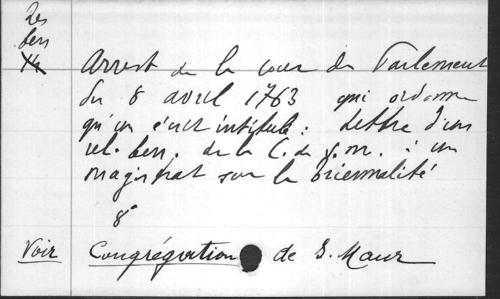 Res
ben
14
Arrest de la cour du Parlement
du 8 avril 1763 qui ordonne
qu'un écrit intitulé : Lettre d'un
rel. ben. de la C. de S. M. à un
magistrat sur la triennalité
8°
Voir Congrégation de S. Maur